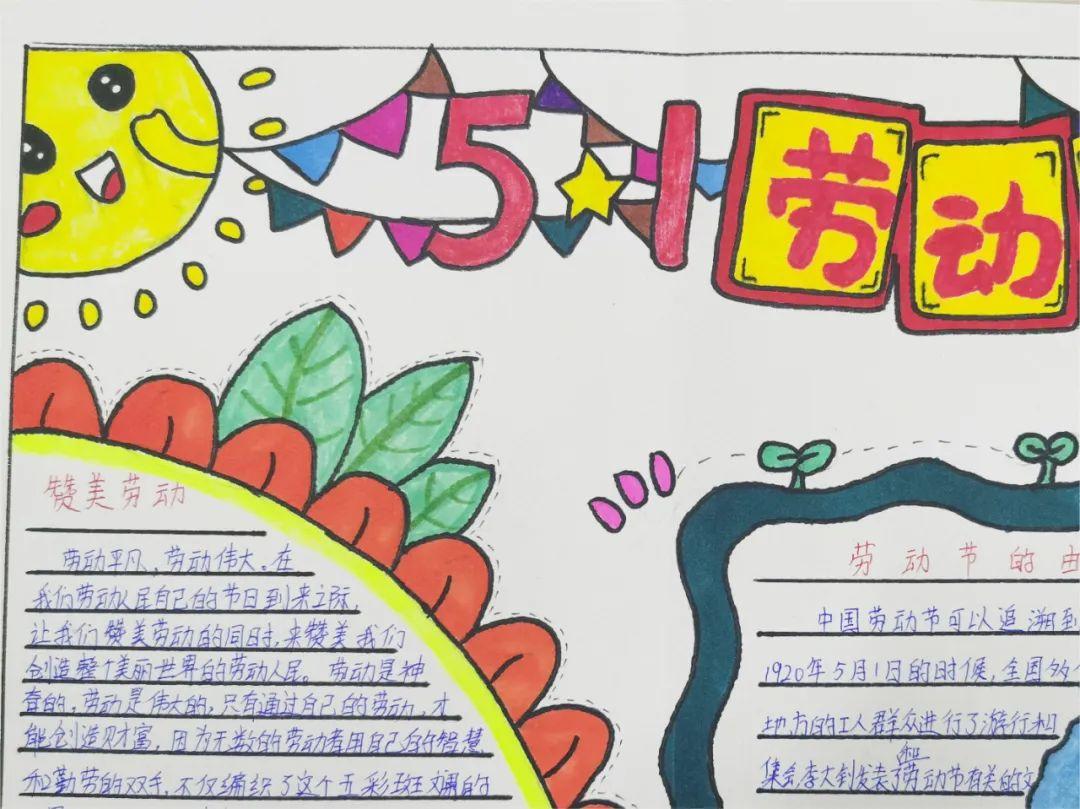 5·1 劳动
赞美劳动
劳动平凡，劳动伟大。在
我们劳动人民自己的节日到来之际，
让我们赞美劳动的同时，来赞美我们
创造整个美丽世界的劳动人民。劳动是神
奇的，劳动是伟大的，只有通过自己的劳动，才
能创造财富，因为无数的劳动者用自己的智慧
和勤劳的双手，不仅编织了这个五彩斑斓的
劳动节的由
中国劳动节可以追溯到
1920年5月1日的时候，全国多个
地方的工人群众进行了游行和
集会，李大钊发表了和劳动节有关的文